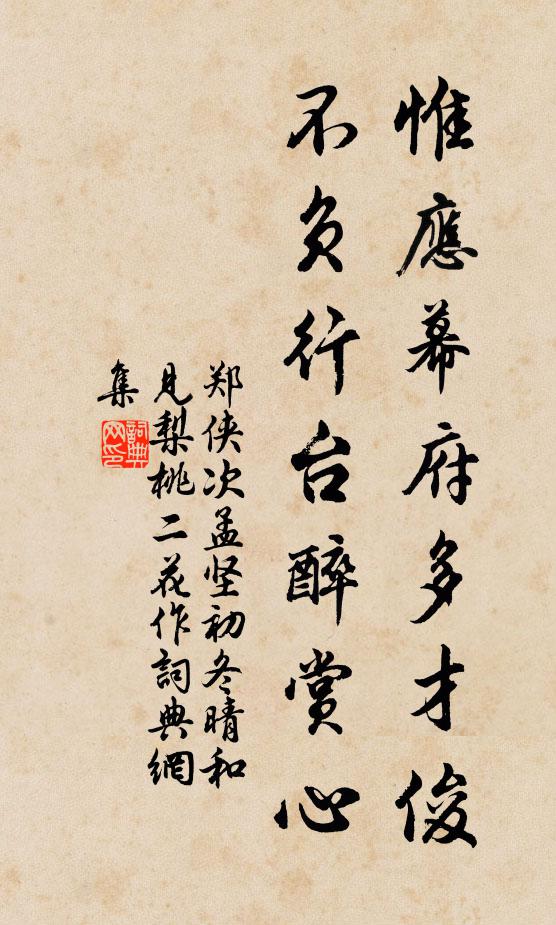 惟應幕府多才俊
不負行台醉賞心
郑侠次孟坚初冬晴和
見梨桃二花作詞典網
集
詞典
网印